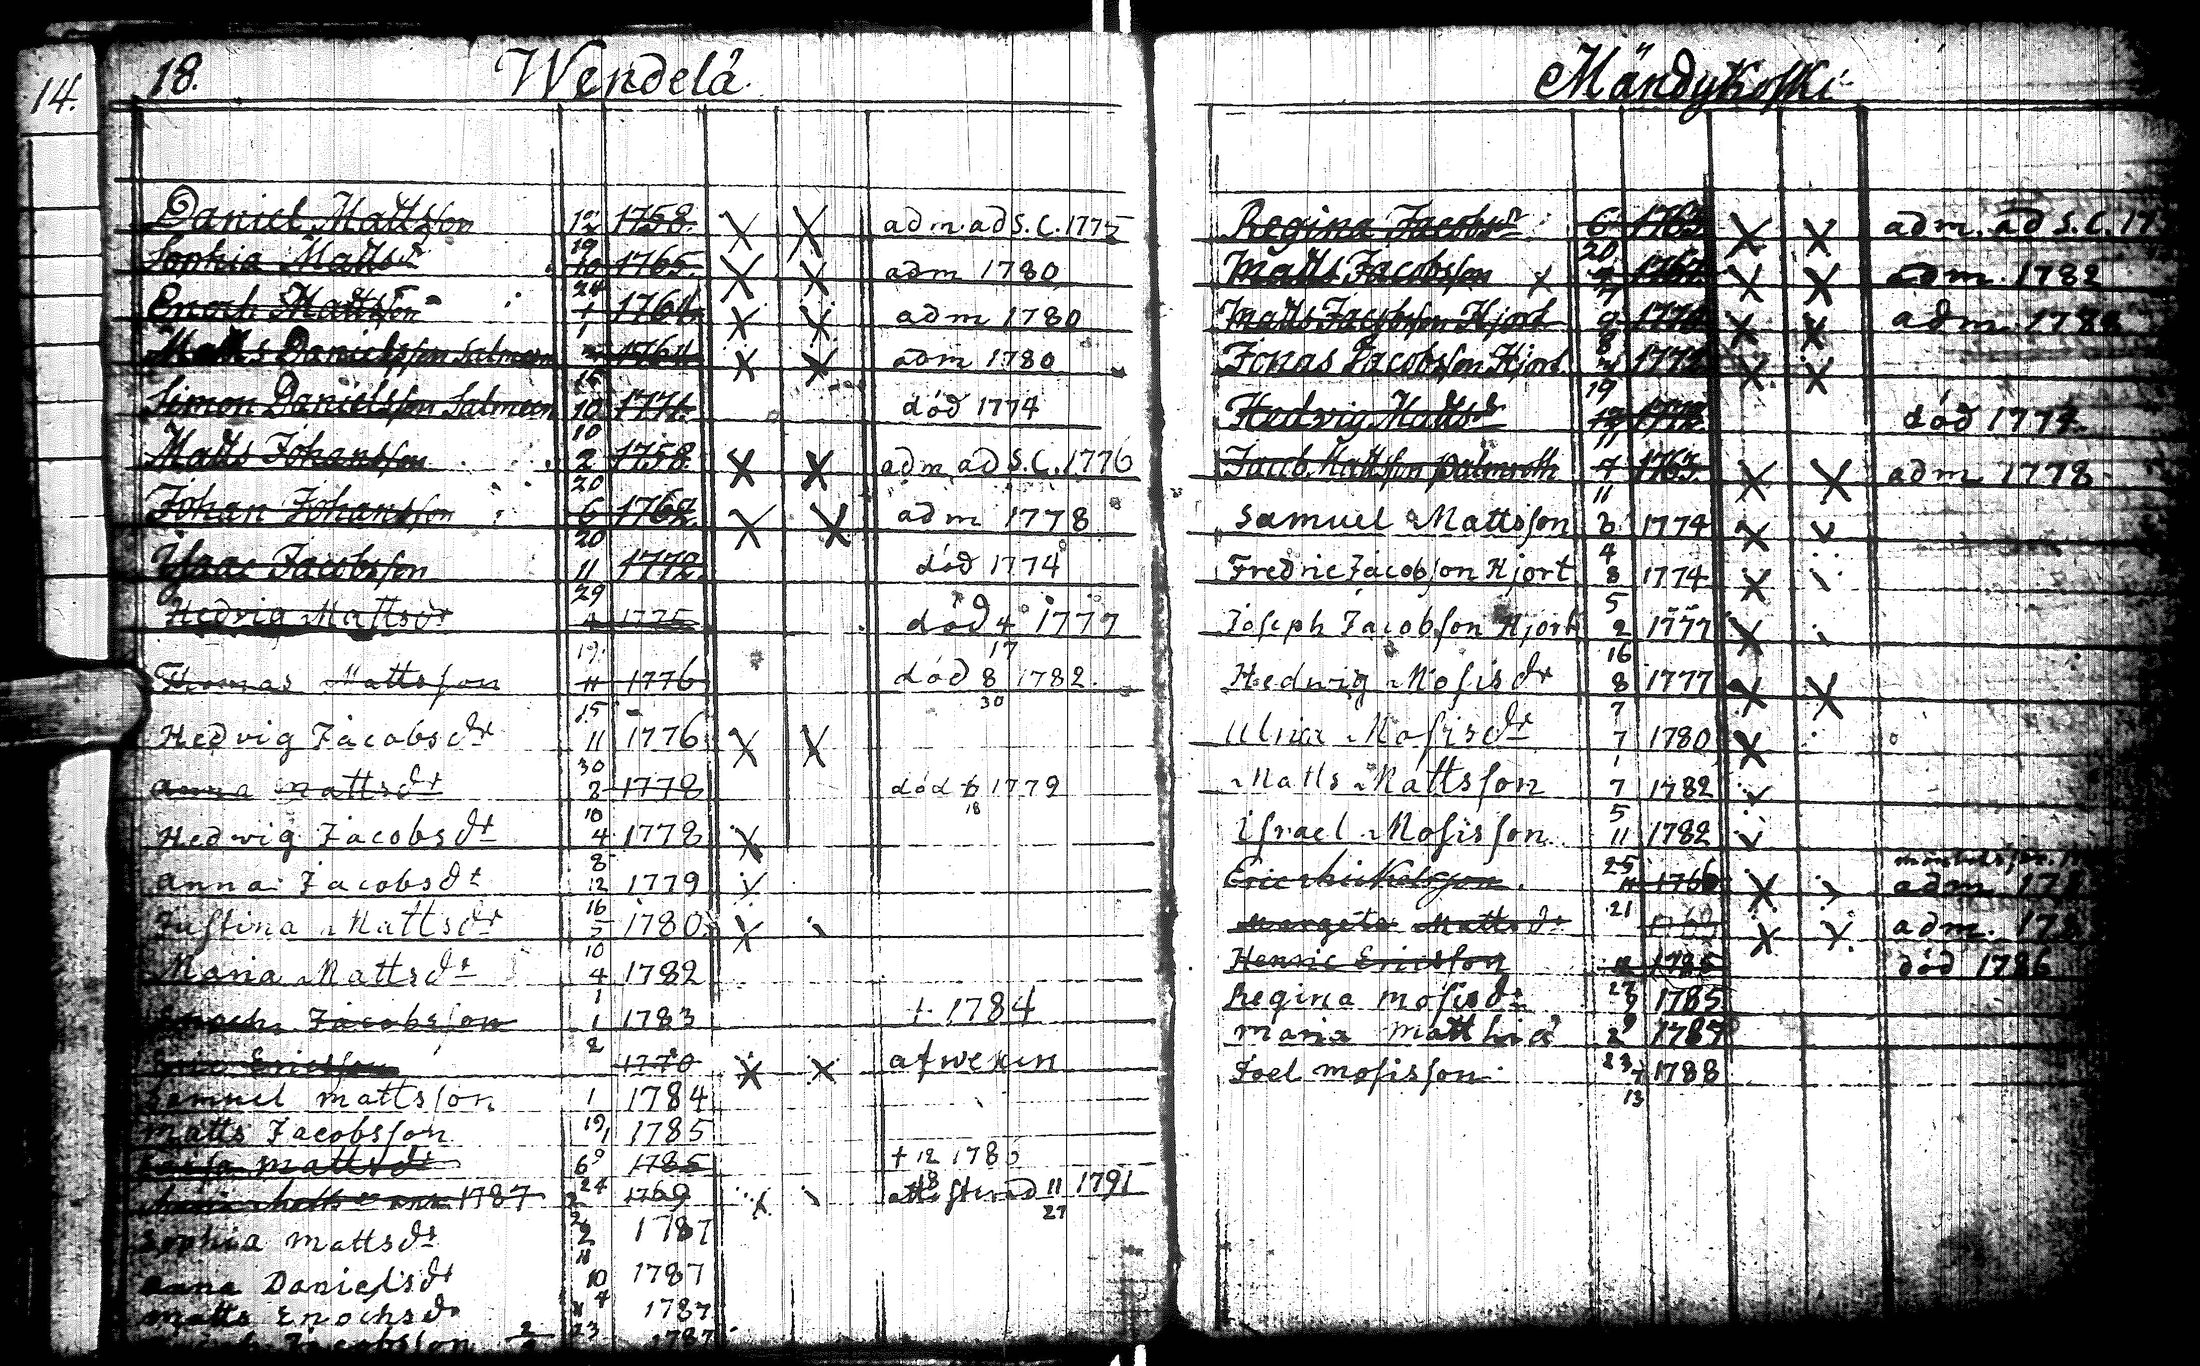 14.
18. Wendelå
Daniel Mattsson 1758 X X adm. ad S. C. 1775
Sophia Mattsdr 19 10 1765 X X adm 1780
Enoch Mattsson 24 1 1764 X X adm 1780
Matts Danielsson Salmeen 1 1764 X X adm 1780
Simon Danielsson Salmeen 10 1771 död 1774
Matts Johansson 10 2 1758 X X adm ad S. C. 1776
Johan Johansson 20 6 1762 X X adm 1778
Isaac Jacobsson 20 11 1772 död 1774
Hedvig Mattsdr 29 4 1775 död 4 1777
17
Thomas Mattsson 19 11 1776 död 8 1782.
30
Hedvig Jacobsdr 15 11 1776 X X
Anna Mattsdr 30 2 1778 död 6 1779
18
Hedwig Jacobsdr 10 4 1778 X
Anna Jacobsdr 8 12 1779
Justina Mattsdr 16 1780 X
Maria Mattsdr 10 4 1782
Enoch Jacobsson 1 1 1783 † 1784
Eric Ericsson 2 1770 X X afweken
Samuel Mattsson 1 1784
Matts Jacobsson 19 1 1785
Mattsdr 6 9 1785 † 12 1786
18
1787 24 1769 X 11 1791
27
Sophia Mattsdr 2 1787
11
Anna Danielsdr 10 1787
4
Matts Enochsdr 1787
Jacobsson 2 23 1787
Mändykoski
Regina Jacobsdr 6 1763 X X adm. ad S. C. 17
Matts Jacobsson 20 1767 X X adm. 1782
Matts Jacobsson Hjort 7 9 1770 X X adm. 1788
Jonas Jacobsson Hjort 8 1772 X X
Hedvig Mattsdr 19 12 1772 död 1774
Jacob Mattsson Palmroth 11 7 1763 X X adm. 1778
Samuel Mattsson 11 3 1774 X
Fredric Jacobsson Hjort 4 8 1774 X
Joseph Jacobsson Hjort 5 2 1777 X
Hedwig Mosisdr 16 8 1777 X X
Ulrica Mosisdr 7 7 1780 X
Matts Mattsson 1 7 1782
Israel Mosisson 5 11 1782
Eric Mickelsson 25 11 1766 X adm. 17
Margeta Mattsdr 21 1769 X X adm. 17
Henric Ericsson 1785 död 1786
Regina Mosisdr 27 9 1785
Maria Matthisdr 9 2 1787
Joel Mosisson 23 7 1788
13